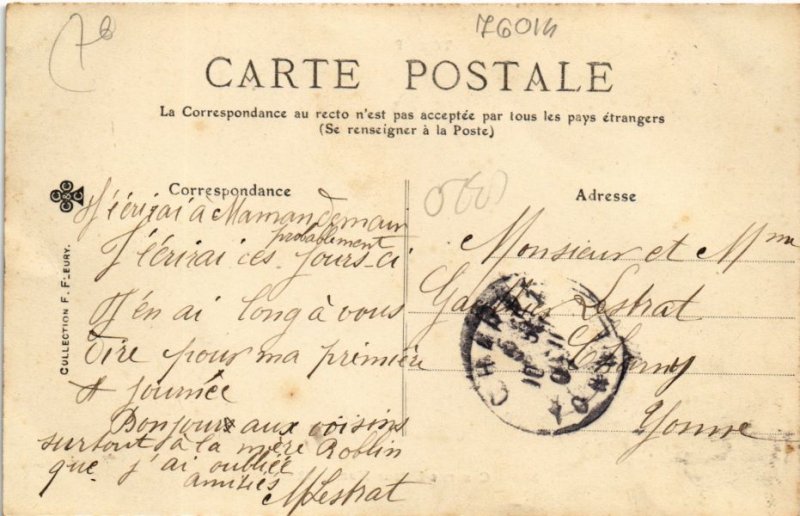 76014
CARTE POSTALE
La Correspondance au recto n'est pas acceptée par tous les pays étrangers
(Se renseigner à la Poste)
Correspondance
J'écrirai à Maman demain
probablement
J'écrirai ces jours-ci
J'en ai long à vous
dire pour ma première
journée
Bonjour aux voisins
surtout à la mère Roblin
que j'ai oubliée
amitiés MLestrat
COLLECTION F. FLEURY.
C C C & C
Adresse
Monsieur et Mme
Lestrat
Charny
Yonne
CHARNY